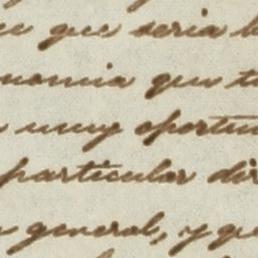 que seria
nomia que
muy oportu
particular dir
general, y que